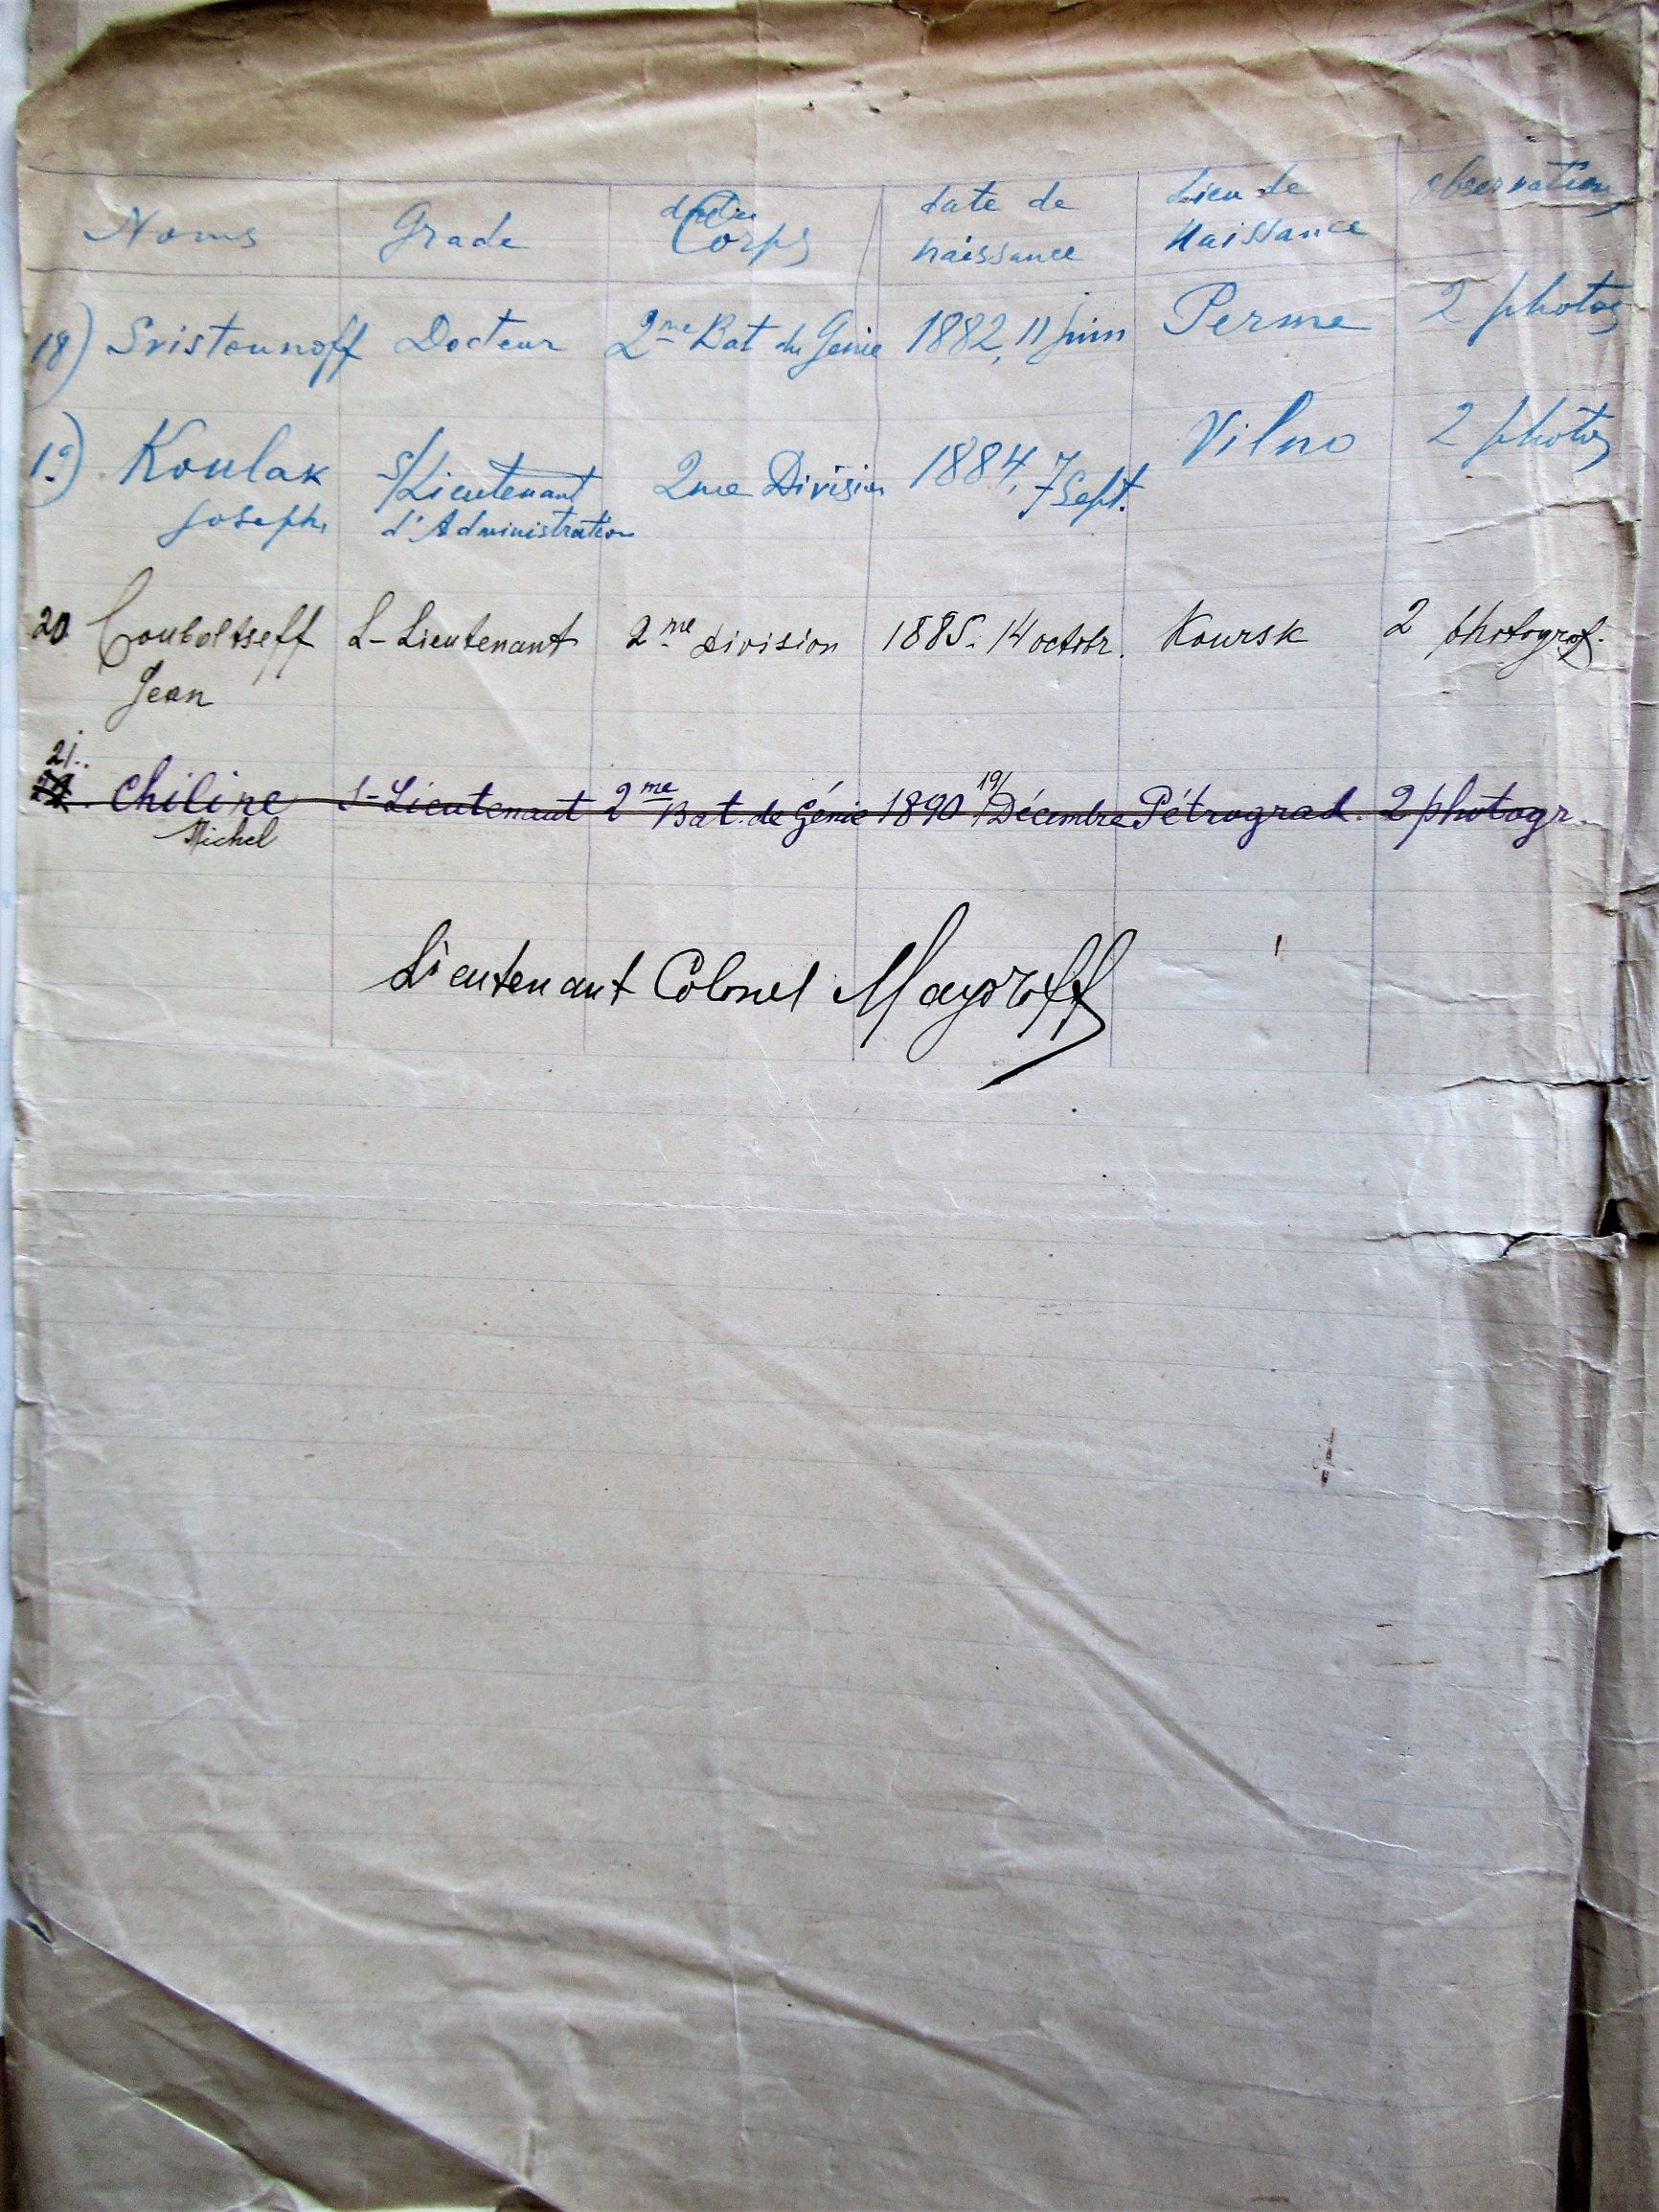 Noms Grade Corps date de naissance Lieu de Naissance observations
18) Svistounoff Docteur 2me Bat du Génie 1882, 11 juin Perme 2 photos
19) Koulak Joseph S/Lieutenant d'Administration 2me Division 1884, 7 Sept. Vilno 2 photos
20 Couboltseff Jean L-Lieutenant 2me division 1885. 14 octobr. Koursk 2 photograf.
21. Chiline Michel S-Lieutenant 2me Bat. de Génie 1890. 19/Décembre Pétrograd. 2 photogr.
Lieutenant Colonel Mayoroff